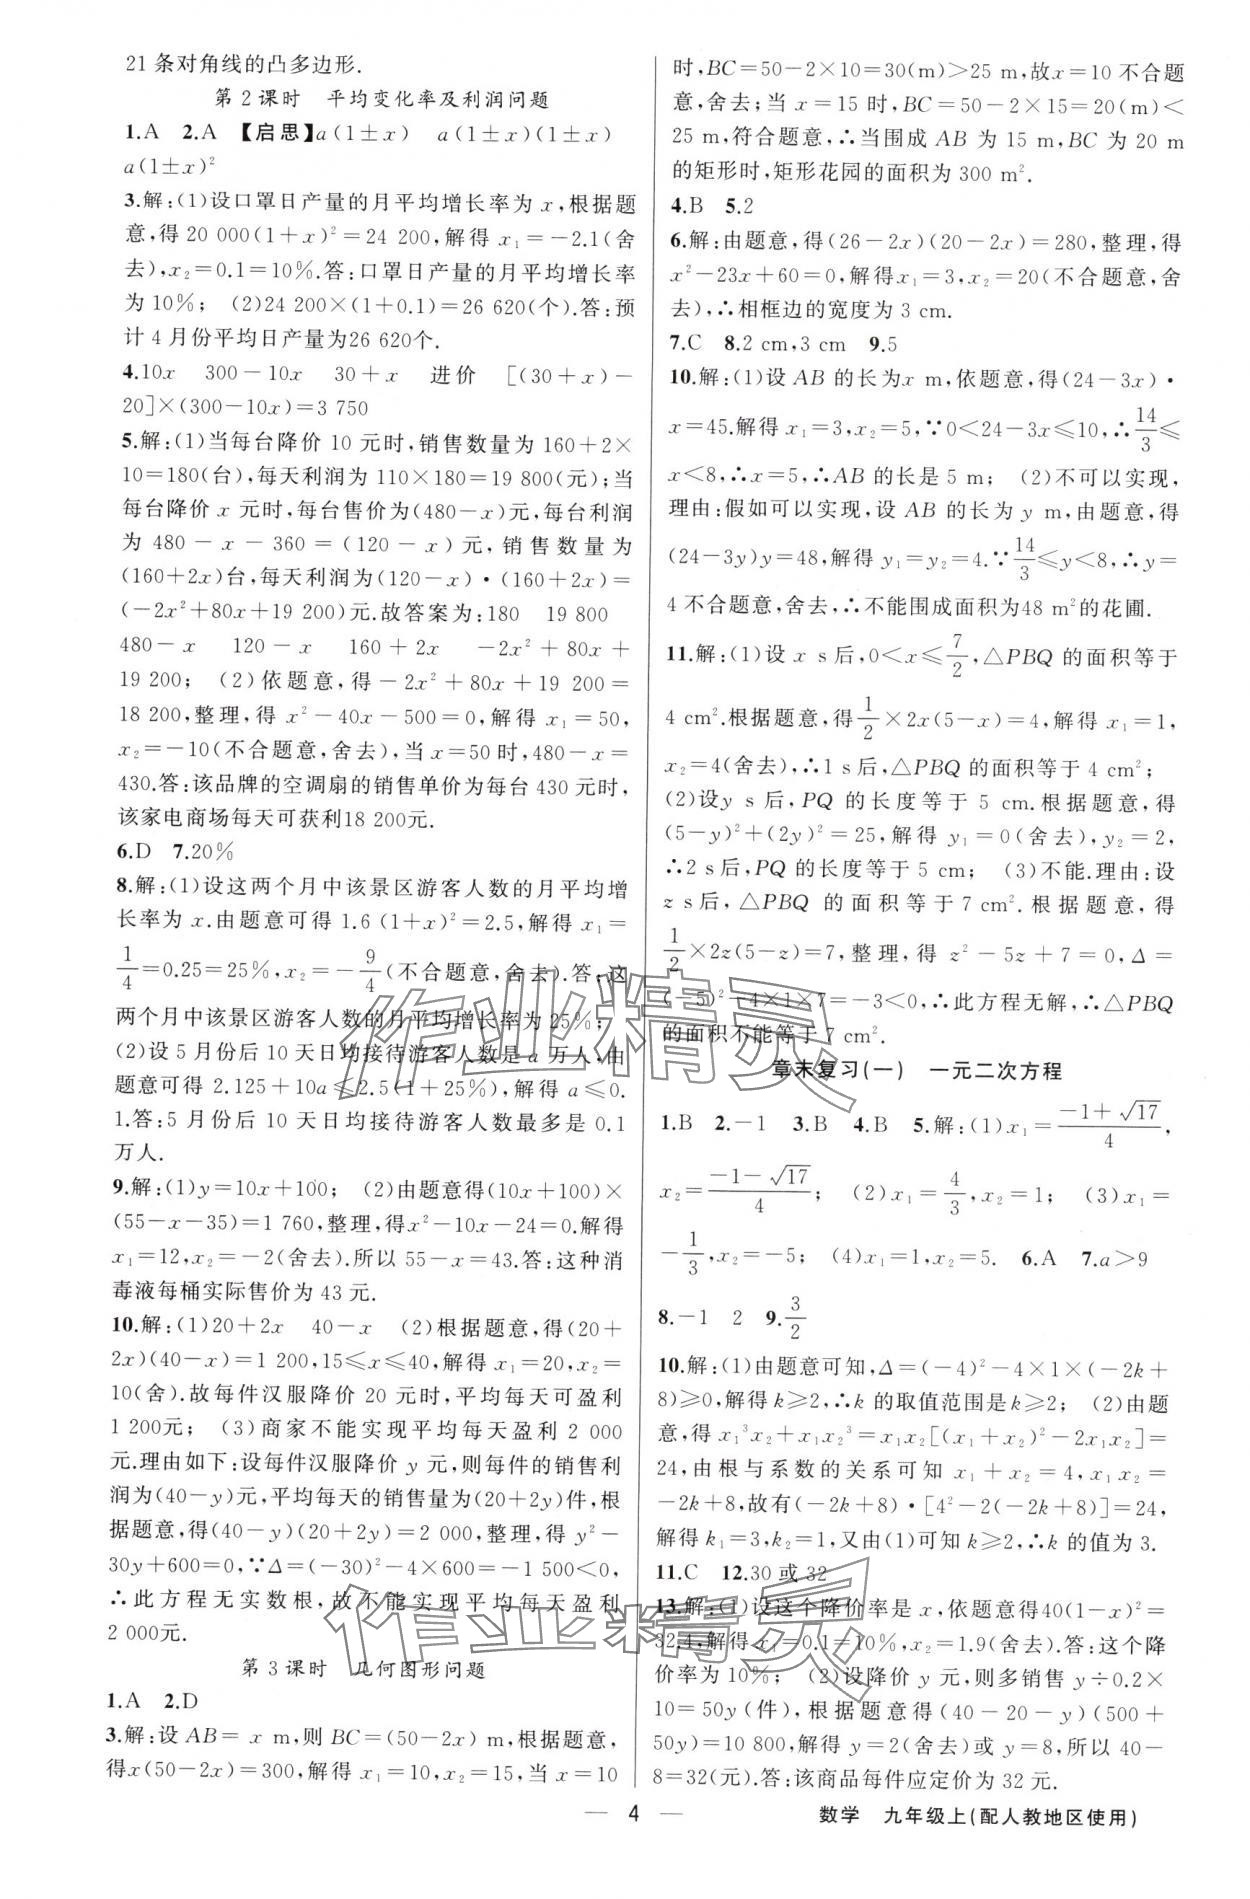 21 条对角线的凸多边形.
第 2 课时　平均变化率及利润问题
1.A　2.A　【启思】a(1±x)　a(1±x)(1±x)
a(1±x)²
3.解:(1)设口罩日产量的月平均增长率为 x,根据题
意,得 20 000(1+x)²=24 200,解得 x₁=-2.1(舍
去),x₂=0.1=10%.答:口罩日产量的月平均增长率
为 10%;　(2)24 200×(1+0.1)=26 620(个).答:预
计 4 月份平均日产量为26 620个.
4.10x　300-10x　30+x　进价　[(30+x)-
20]×(300-10x)=3 750
5.解:(1)当每台降价 10 元时,销售数量为 160+2×
10=180(台),每天利润为 110×180=19 800(元);当
每台降价 x 元时,每台售价为(480-x)元,每台利润
为 480-x-360=(120-x)元,销售数量为
(160+2x)台,每天利润为(120-x)·(160+2x)=
(-2x²+80x+19 200)元.故答案为:180　19 800
480-x　120-x　160+2x　-2x²+80x+
19 200;　(2)依题意,得-2x²+80x+19 200=
18 200,整理,得 x²-40x-500=0,解得 x₁=50,
x₂=-10(不合题意,舍去),当 x=50 时,480-x=
430.答:该品牌的空调扇的销售单价为每台 430 元时,
该家电商场每天可获利18 200元.
6.D　7.20%
8.解:(1)设这两个月中该景区游客人数的月平均增
长率为 x.由题意可得 1.6(1+x)²=2.5,解得 x₁=
1/4=0.25=25%,x₂=-9/4(不合题意,舍去).答:这
两个月中该景区游客人数的月平均增长率为 25%;
(2)设 5 月份后 10 天日均接待游客人数是 a 万人,由
题意可得 2.125+10a≤2.5(1+25%),解得 a≤0.
1.答:5 月份后 10 天日均接待游客人数最多是 0.1
万人.
9.解:(1)y=10x+100;　(2)由题意得(10x+100)×
(55-x-35)=1 760,整理,得x²-10x-24=0.解得
x₁=12,x₂=-2(舍去).所以 55-x=43.答:这种消
毒液每桶实际售价为 43 元.
10.解:(1)20+2x　40-x　(2)根据题意,得(20+
2x)(40-x)=1 200,15≤x≤40,解得 x₁=20,x₂=
10(舍).故每件汉服降价 20 元时,平均每天可盈利
1 200元;　(3)商家不能实现平均每天盈利 2 000
元.理由如下:设每件汉服降价 y 元,则每件的销售利
润为(40-y)元,平均每天的销售量为(20+2y)件,根
据题意,得(40-y)(20+2y)=2 000,整理,得 y²-
30y+600=0,∵Δ=(-30)²-4×600=-1 500<0,
∴此方程无实数根,故不能实现平均每天盈利
2 000元.
第 3 课时　几何图形问题
1.A　2.D
3.解:设 AB= x m,则 BC=(50-2x) m,根据题意,
得x(50-2x)=300,解得 x₁=10,x₂=15,当 x=10
时,BC=50-2×10=30(m)>25 m,故x=10 不合题
意,舍去;当 x=15 时,BC=50-2×15=20(m)<
25 m,符合题意,∴当围成 AB 为 15 m,BC 为 20 m
的矩形时,矩形花园的面积为 300 m².
4.B　5.2
6.解:由题意,得(26-2x)(20-2x)=280,整理,得
x²-23x+60=0,解得x₁=3,x₂=20(不合题意,舍
去),∴相框边的宽度为 3 cm.
7.C　8.2 cm,3 cm　9.5
10.解:(1)设 AB 的长为x m,依题意,得(24-3x)·
x=45.解得 x₁=3,x₂=5,∵0<24-3x≤10,∴14/3≤
x<8,∴x=5,∴AB 的长是 5 m;　(2)不可以实现,
理由:假如可以实现,设 AB 的长为 y m,由题意,得
(24-3y)y=48,解得 y₁=y₂=4.∵14/3≤y<8,∴y=
4 不合题意,舍去,∴不能围成面积为48 m²的花圃.
11.解:(1)设 x s后,0<x≤7/2,△PBQ 的面积等于
4 cm².根据题意,得1/2×2x(5-x)=4,解得 x₁=1,
x₂=4(舍去),∴1 s后,△PBQ的面积等于 4 cm²;
(2)设y s后,PQ 的长度等于 5 cm.根据题意,得
(5-y)²+(2y)²=25,解得 y₁=0(舍去),y₂=2,
∴2 s后,PQ 的长度等于5 cm;　(3)不能.理由:设
z s后,△PBQ 的面积等于 7 cm².根据题意,得
1/2×2z(5-z)=7,整理,得 z²-5z+7=0,Δ=
(-5)²-4×1×7=-3<0,∴此方程无解,∴△PBQ
的面积不能等于 7 cm².
章末复习(一)　一元二次方程
1.B　2.-1　3.B　4.B　5.解:(1)x₁=(-1+√17)/4,
x₂=(-1-√17)/4;　(2)x₁=4/3,x₂=1;　(3)x₁=
-1/3,x₂=-5;　(4)x₁=1,x₂=5.　6.A　7.a>9
8.-1　2　9.3/2
10.解:(1)由题意可知,Δ=(-4)²-4×1×(-2k+
8)≥0,解得 k≥2,∴k 的取值范围是 k≥2;　(2)由题
意,得 x₁³x₂+x₁x₂³=x₁x₂[(x₁+x₂)²-2x₁x₂]=
24,由根与系数的关系可知 x₁+x₂=4,x₁x₂=
-2k+8,故有(-2k+8)·[4²-2(-2k+8)]=24,
解得 k₁=3,k₂=1,又由(1)可知 k≥2,∴k 的值为 3.
11.C　12.30 或 32
13.解:(1)设这个降价率是 x,依题意得40(1-x)²=
32.4,解得x₁=0.1=10%,x₂=1.9(舍去).答:这个降
价率为 10%;　(2)设降价 y 元,则多销售 y÷0.2×
10=50y(件),根据题意得(40-20-y)(500+
50y)=10 800,解得 y=2(舍去)或 y=8,所以 40-
8=32(元).答:该商品每件应定价为 32 元.
作业精灵
作业精灵
— 4 —
数学　九年级上(配人教地区使用)